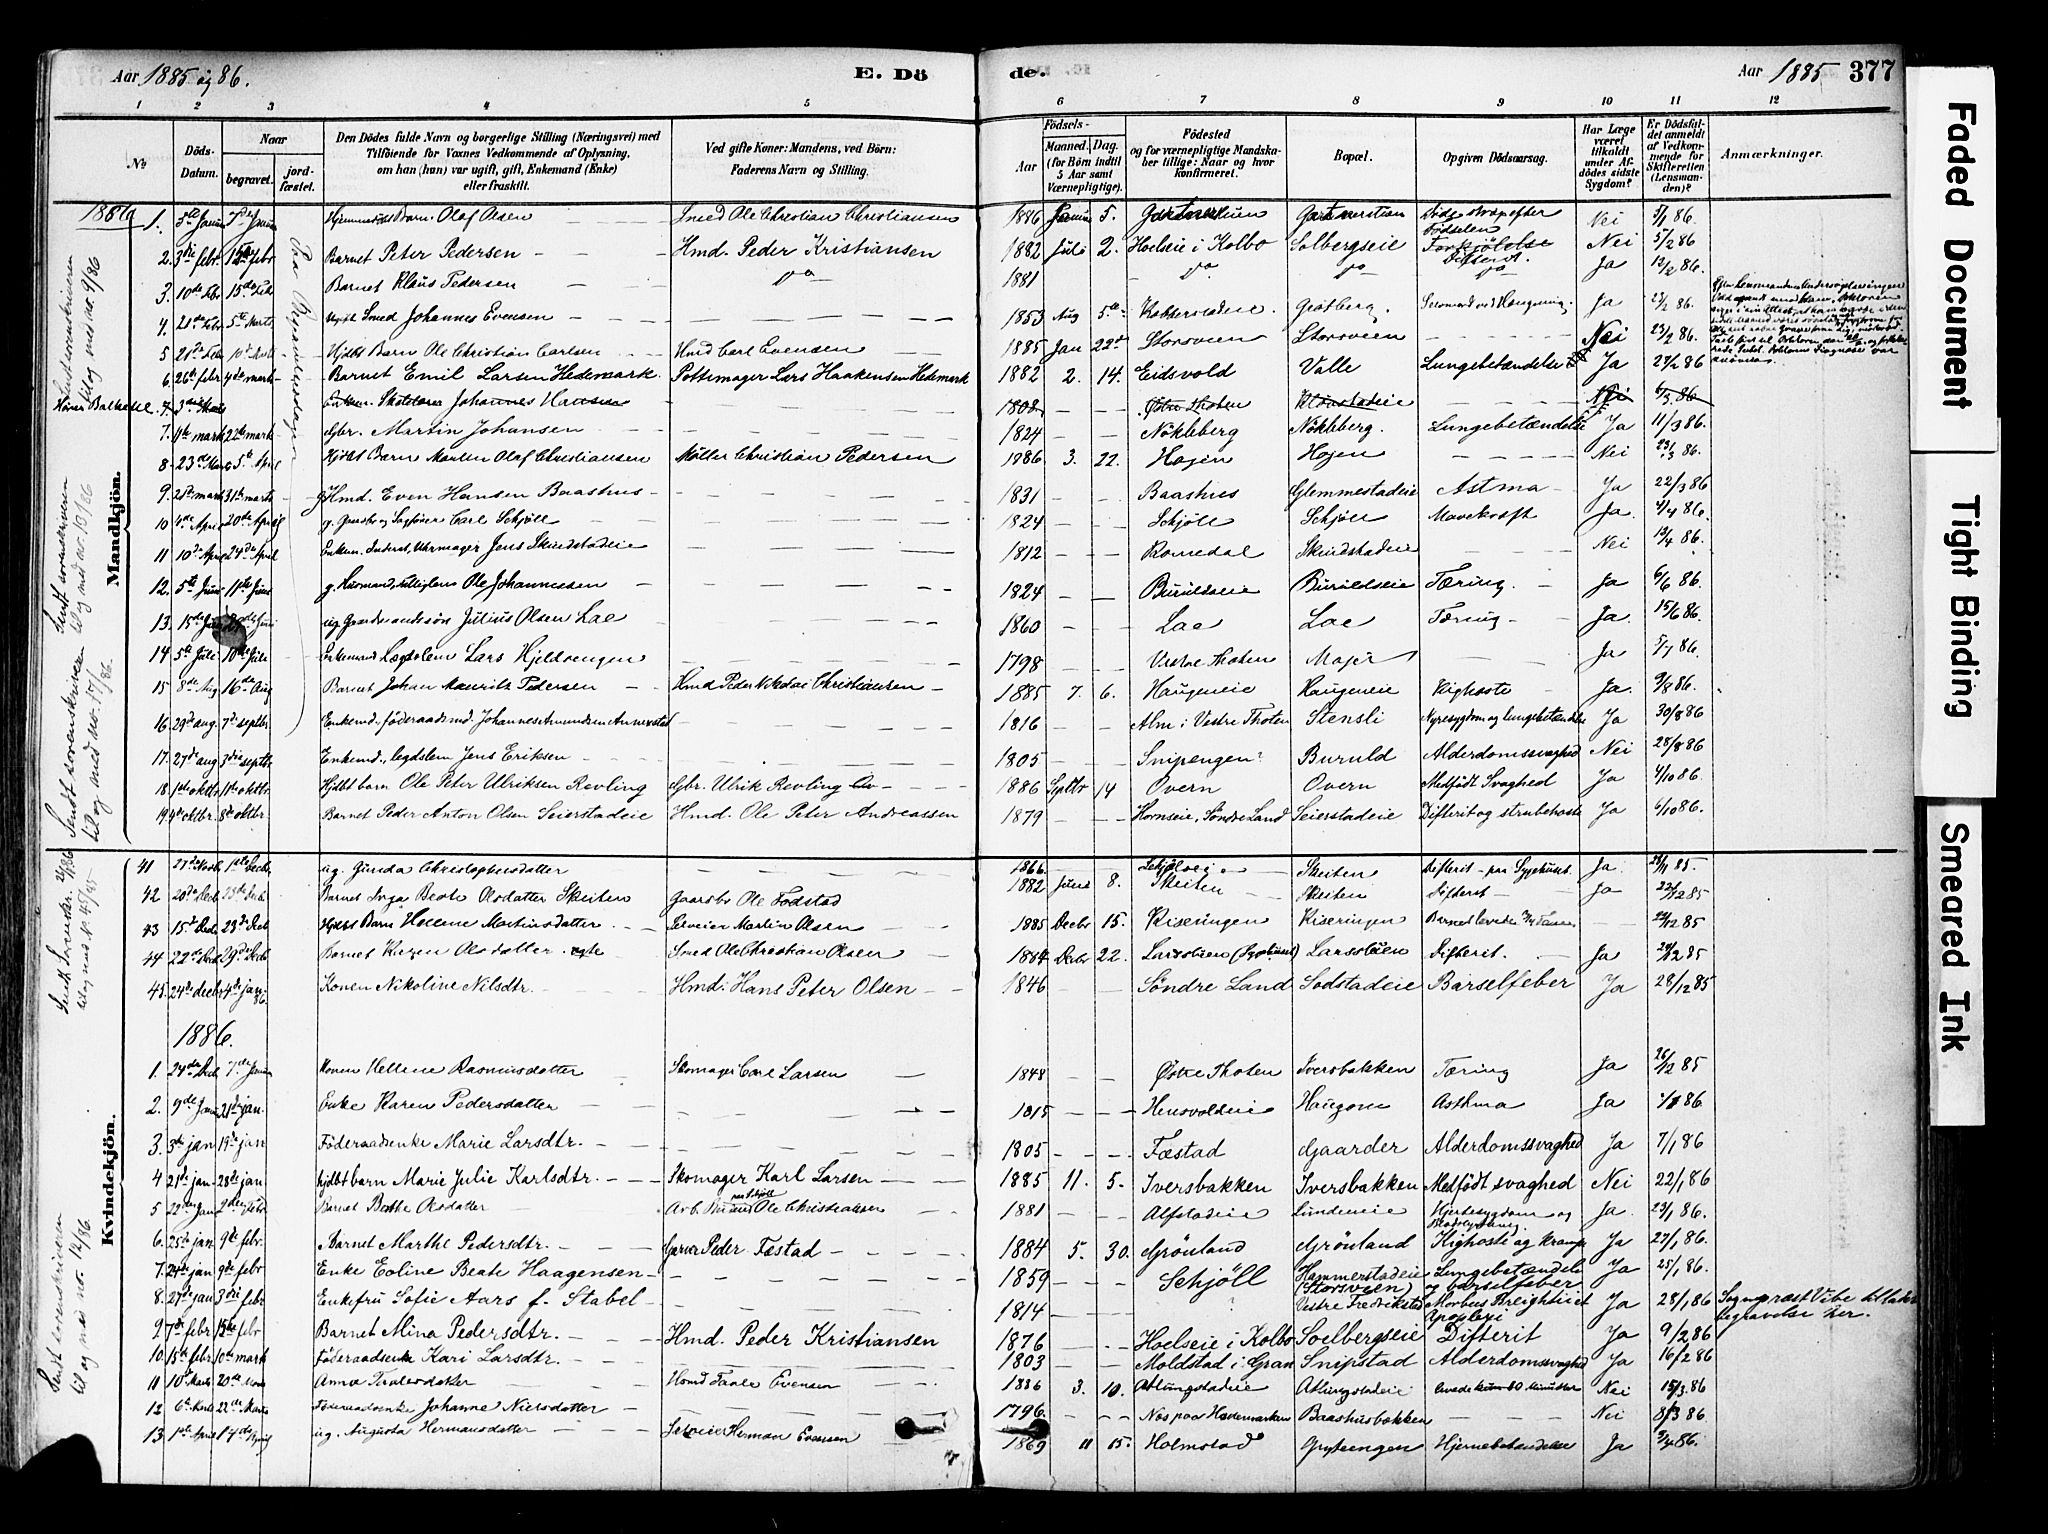 Aar 1885 og 86.
E. Dö
de.
Aar 1885
377
1 2 3 4 5 6 7 8 9 10 11 12
No
Döds-Datum.
Naar
begravet.
jord-fæstet.
Den Dödes fulde Navn og borgerlige Stilling (Næringsvei) med
Tilföiende for Voxnes Vedkommende af Oplysning,
om han (hun) var ugift, gift, Enkemand (Enke)
eller fraskilt.
Ved gifte Koner: Mandens, ved Börn:
Faderens Navn og Stilling.
Födsels-
Aar
Maaned. Dag.
(for Börn indtil
5 Aar samt
Værnepligtige).
Födested
og for værnepligtige Mandska-
ber tillige: Naar og hvor
konfirmeret.
Bopæl.
Opgiven Dödsaarsag.
Har Læge
været
tilkaldt
under Af-
dödes sidste
Sygdom?
Er Dödsfal-
det anmeldt
af Vedkom-
mende for
Skifteretten
(Lensman-
den)?
Anmærkninger.
Mandkjön.
1. Olaf Olsen Smed Ole Christian Christiansen 1886 5. Nei 5/1 86.
2. 3die febr 12te febr Barnet Peter Pedersen Hmd. Peder Kristiansen 1882 Juli 2. Hoelseie i Kolbo Solbergseie Nei 5/2 86
3. 10de Febr 15de Feb Barnet Klaus Pedersen do 1881 do do do Ja 12/2 86.
4. 21de Febr 5te Marts Smed Johannes Evensen 1853 Aug 5te Gratberg. Ja 23/2 86.
5 21de Feb Hjdbt Barn Ole Christian Carlsen Hmd Carl Evensen 1885 Jan 22de Storsveen Storsveen Nei 23/2 86.
6. 26te febr 4de mark Barnet Emil Larsen Hedemark. Pottemager Lars Haakensen Hedemark 1882 2. 14. Eidsvold Valle Lungebetændelse Ja 27/2 86
7. 3die Johannes Hansen 1802 Östre Thoten Nei 6/3 86
7. 11te mark 22de mark Gbr. Martin Johansen 1824 Nökleberg Nökleberg. Lungebetændelse Ja 11/3 86.
8. 23de Marts 5te April Hjdbt Barn Martin Olaf Christiansen Möller Christian Pedersen 1886 3. 22. Hagen Hagen Nei 23/3 86.
9. 21de mark 31te marts Hmd. Even Hansen Baashus 1831 Baashus Glemmestadeie Astma Ja 22/3 86
10 4de April 20de April g. Gaardbr og Sagförer Carl Schjöll 1824 Schjöll Schjöll Mavekræft Ja. 4/4 86.
11 10de April 24de April Enkem. Inderst, Uhrmager Jens Skindstadeie 1812 Romedal Skindstadeie Nei 13/4 86.
12. 5te Juni 11te Juni g. Husmand, Ole Johannesen 1824 Burildseie Burildseie Tæring. Ja 6/6 86.
13. 15de Juni ug. Gaardmandssön Julius Olsen Lae 1860 Lae Lae Tæring Ja. 15/6 86.
14 5te Juli 10de Juli Enkemand Lægdslem Lars Hjeldvengen 1798 Vestre Thoten Majer Ja 5/7 86.
15 8de Aug 16de Aug Barnet Johan Mauritz Pedersen Hmd Peder Nikolai Christiansen 1885 7. 6. Haugeneie Haugeneie Kighoste Ja. 9/8 86.
16. 29de aug. 7de septbr Enkemd., föderaadsmd. Johannes Amundsen Annexstad 1816 Alm i Vestre Thoten Stensli Nyresygdom og lungebetændelse Ja 30/8 86
17. 27de aug 3die septbr Enkemd., legdslem Jens Eriksen 1805 Snipengen? Buruld Alderdomssvaghed Nei 28/8 86
18. 1ste oktbr 11te oktbr Hjdbt barn Ole Peter Ulriksen Revling Gbr. Ulrik Revling 1886 Septbr 14 Overn Overn Medfödt Svaghed Ja 4/10 86.
19. 4de oktbr. 8de oktbr. Barnet Peder Anton Olsen Seierstadeie Hmd. Ole Peter Andreassen 1879 Hornseie, Söndre Land Seierstadeie Difterit og strubehoste Ja 6/10 86.
Kvindekjön.
41 27de Novbr 1ste Decbr. ug. Gunda Christophersdatter 1866 Skeiten Difterit - paa Sygehuset. Ja. 28/11 85.
42 20de Decb Barnet Inga Beate Olsdatter Skeiten Gaardbr Ole Fodstad 1882 Juni 8. Skeiten Skeiten Difterit Ja 22/12 85
43 15de Decb 23de Decb Hjdbt Barn Hellene Martinsdatter Selveier Martin Olsen 1885 Decbr 15. Kiseringen Kiseringen 22/12 85
44 22de Decb 29de Decb Barnet Karen Olsdatter Smed Ole Christian Olsen 1884 Decbr 22. Larsstuen Difterit. Ja 24/12 85
45. 24de decbr 4de jan 86 Konen Nikoline Nilsdtr. Hmd. Hans Peter Olsen 1846 Söndre Land Sodstadeie Barselfeber Ja 28/12 85
1886.
1. 24de Decb. 7de Januar Konen Hellene Rasmusdatter Skomager Carl Larsen 1848 Östre Thoten Iversbakken Tæring Ja 26/12 85
2. 9de Jan. 21de jan. Enke Karen Pedersdatter 1815 Hensvoldeie Haugom Asthma Ja
3. 3de jan 19de jan Föderaadsenke Marie Larsdtr. 1805 Fæstad Gaarder Alderdomssvaghed Ja 7/1 86
4 21de jan 28de jan hjdbt barn Marie Julie Karlsdtr. Skomager Karl Larsen 1885 11. 5. Iversbakken Iversbakken Medfödt svaghed Nei 22/1 86
5 22de Jan 2den Febr. Barnet Bolthe Olsdatter Arb. Ole Christiansen 1881 Alfstadeie Lundeneie Hjertesygdom og Ja. 23/1 86.
6. 25te jan. 9de febr. Barnet Marthe Pedersdtr. Garver Peder Fæstad 1884 5. 30. Grönland Grönland Kighoste og krampe Ja 27/1 86.
7. 24de jan 9de febr Enke Eoline Beate Haagensen 1859 Schjöll Hammerstadeie (Storsveen) Lungebetændelse og barselfeber Ja 25/1 86.
8. 27de jan 3die febr Enkefru Sofie Aars f. Stabel 1814 ? Vestre Fredrikstad Morbus Breightii et Apoplexi Ja 28/1 86 Sogneprest Vibe tillader begravelse her.
9. 7de febr 15de febr Barnet Mina Pedersdtr. Hmd. Peder Kristiansen 1876 Hoelseie i Kolbo Soelbergseie Difterit Ja 9/2 86
10. 15de febr. 10de mark Föderaadsenke Kari Larsdtr. 1803 Moldstad i Gran Snipstad Alderdomssvaghed Ja 16/2 86
11 10de Marts 20de Marts Anna Taalesdatter Hmd Taale Evensen 1886 3. 10. Alungstadeie Alungstadeie levede kun 80 Minutter Nei 15/3 86
12 6te Marts 22de Marts Föderaadsenke Johanne Niersdatter 1796. Nes paa Hedemarken Baashusbakken Nei 8/3 86.
13. 1ste April 14de April ug. Augusta Hermansdatter Selveier Herman Evensen 1869 11 15. Holmstad Grytengen Hjernebetændelse Ja 3/4 86.
Sendt sorenskriveren
til og med no. 9/86
Sendt sorenskriveren
til og med nr. 13/86
Sendt sorenskriveren
til og med no. 17/86.
Sendt sorenskriveren
til og med no. 12/86.
Faded Document
Tight Binding
Smeared Ink